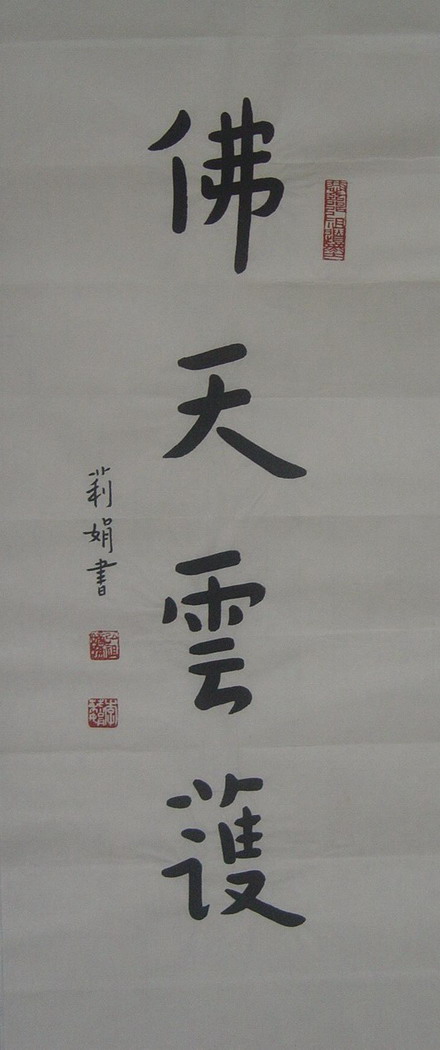 佛天雲護
莉娟書